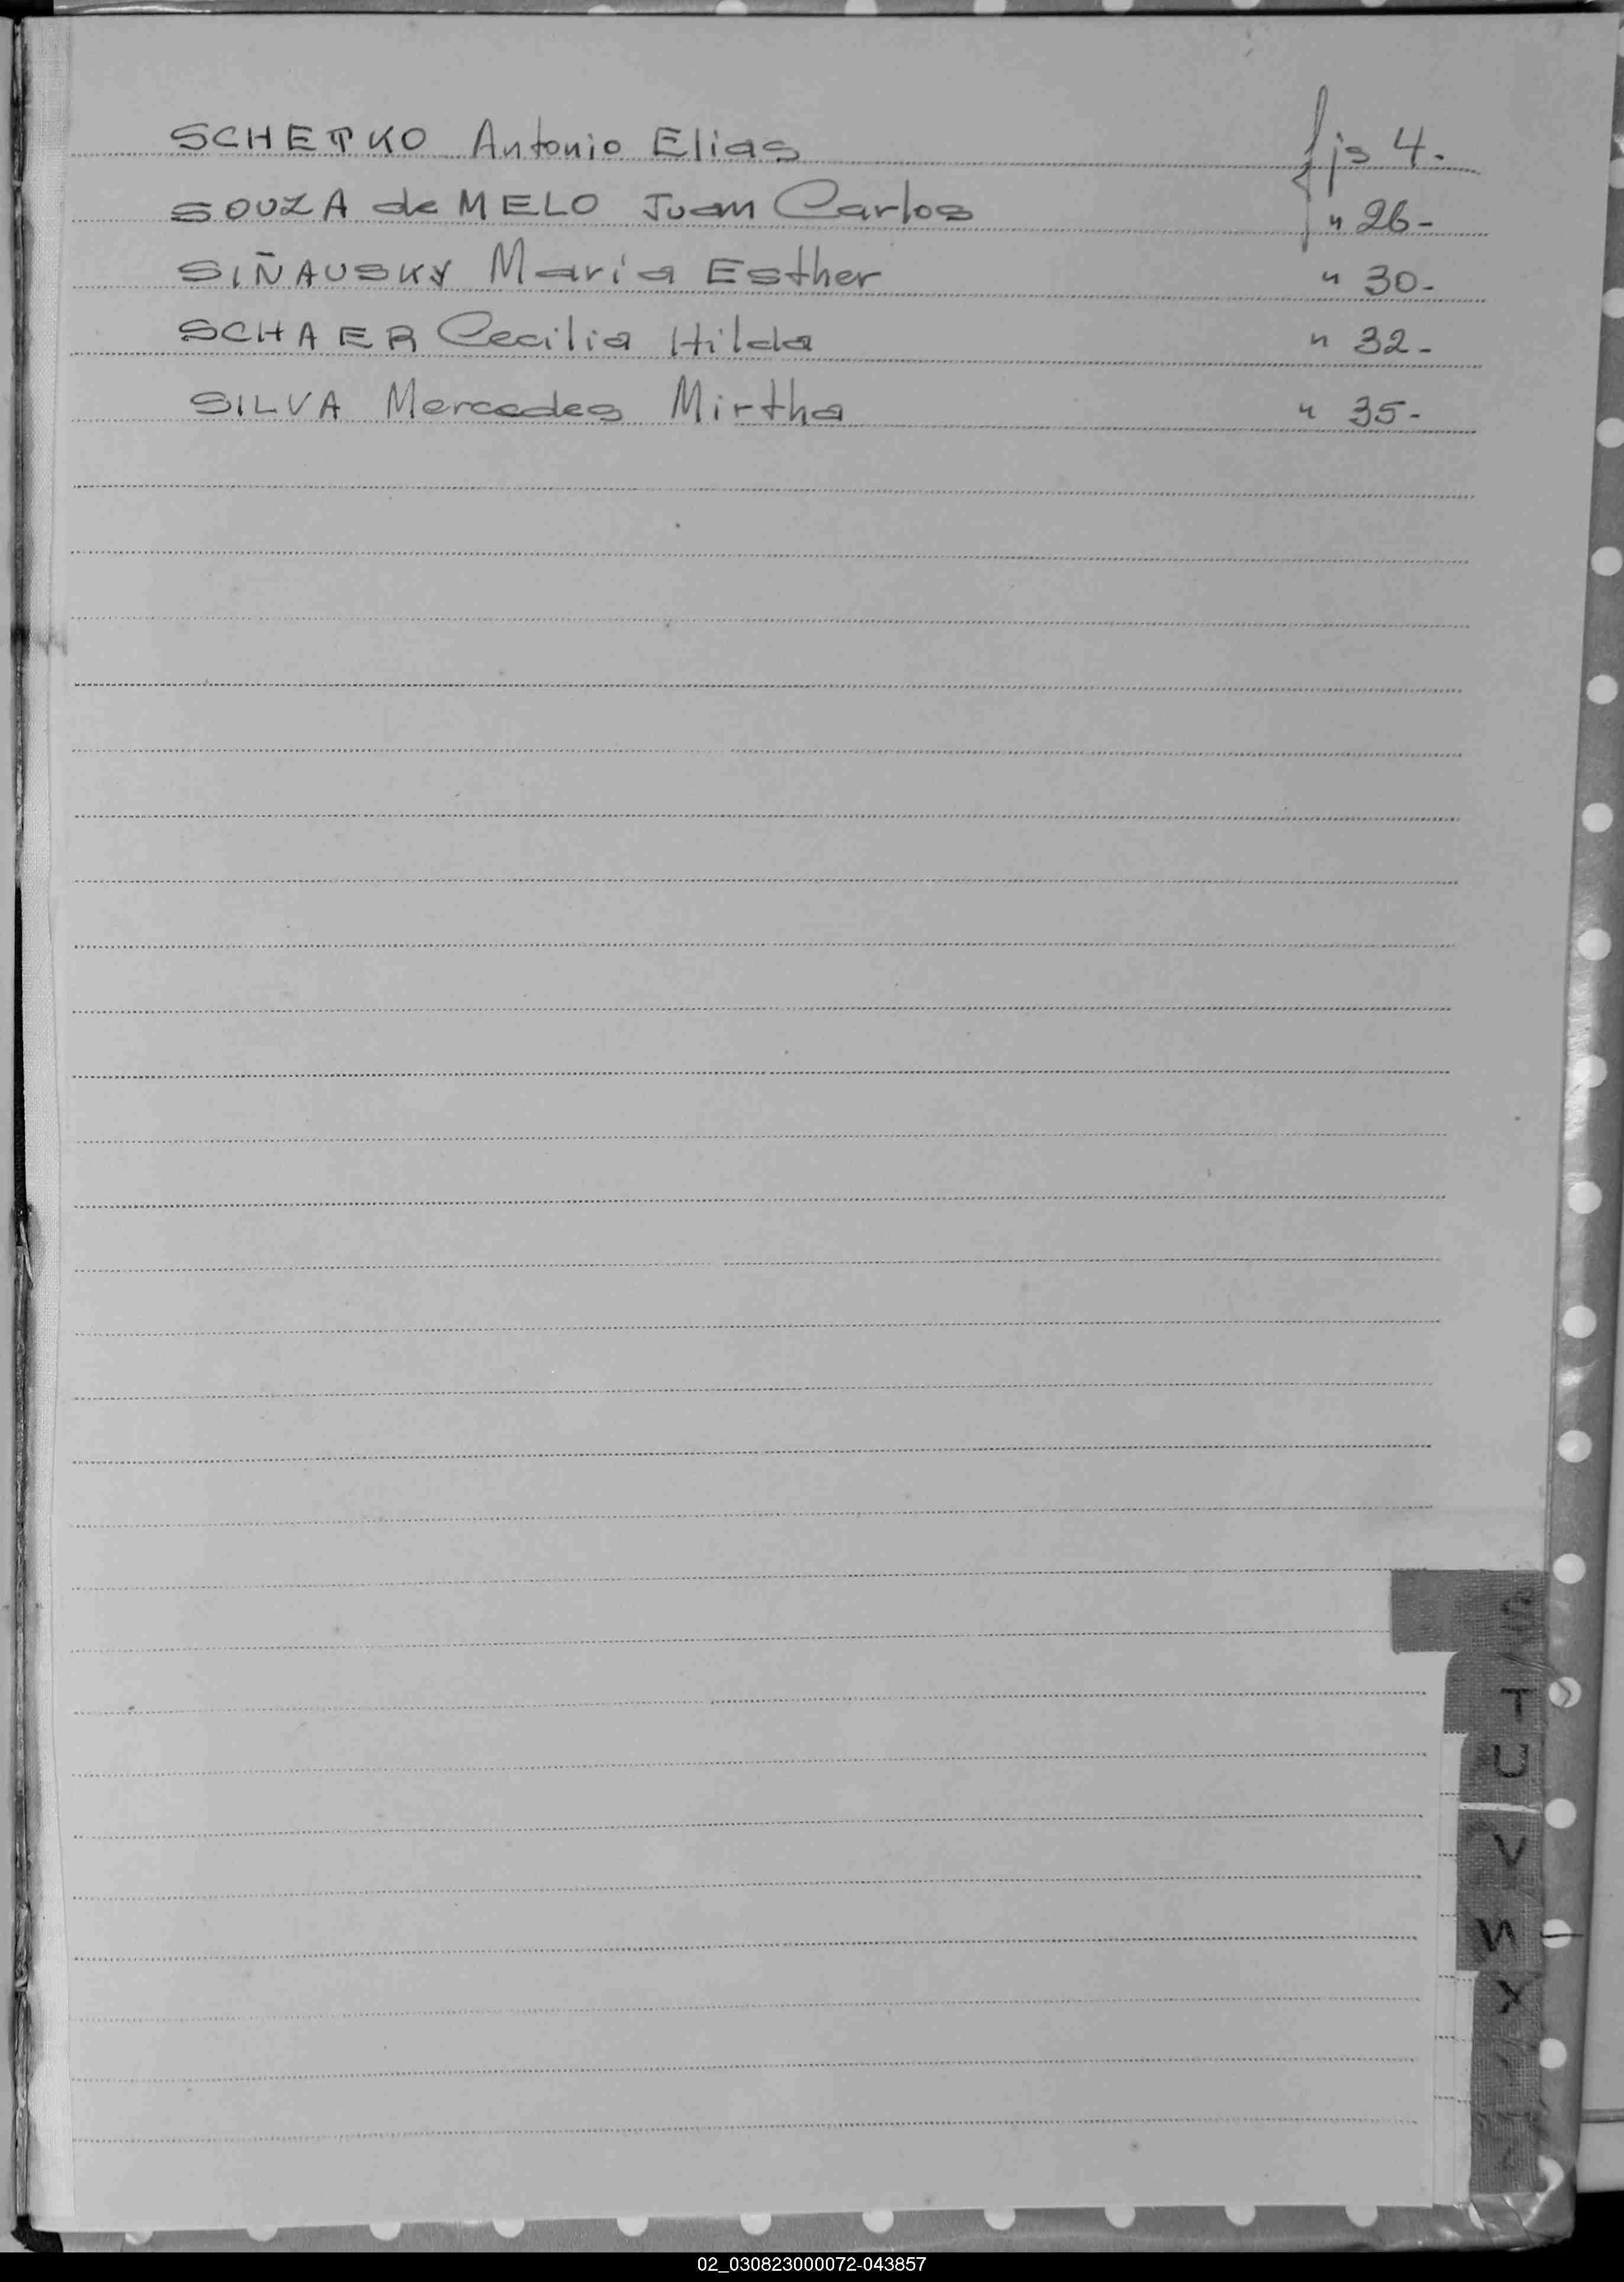 SCHETKO Antonio Elias fjs 4.
SOUZA de MELO Juan Carlos " 26-
SIÑAUSKY Maria Esther " 30-
SCHAER Cecilia Hilda " 32-
SILVA Mercedes Mirtha " 35-
S
T
U
V
W
X
02_030823000072-043857